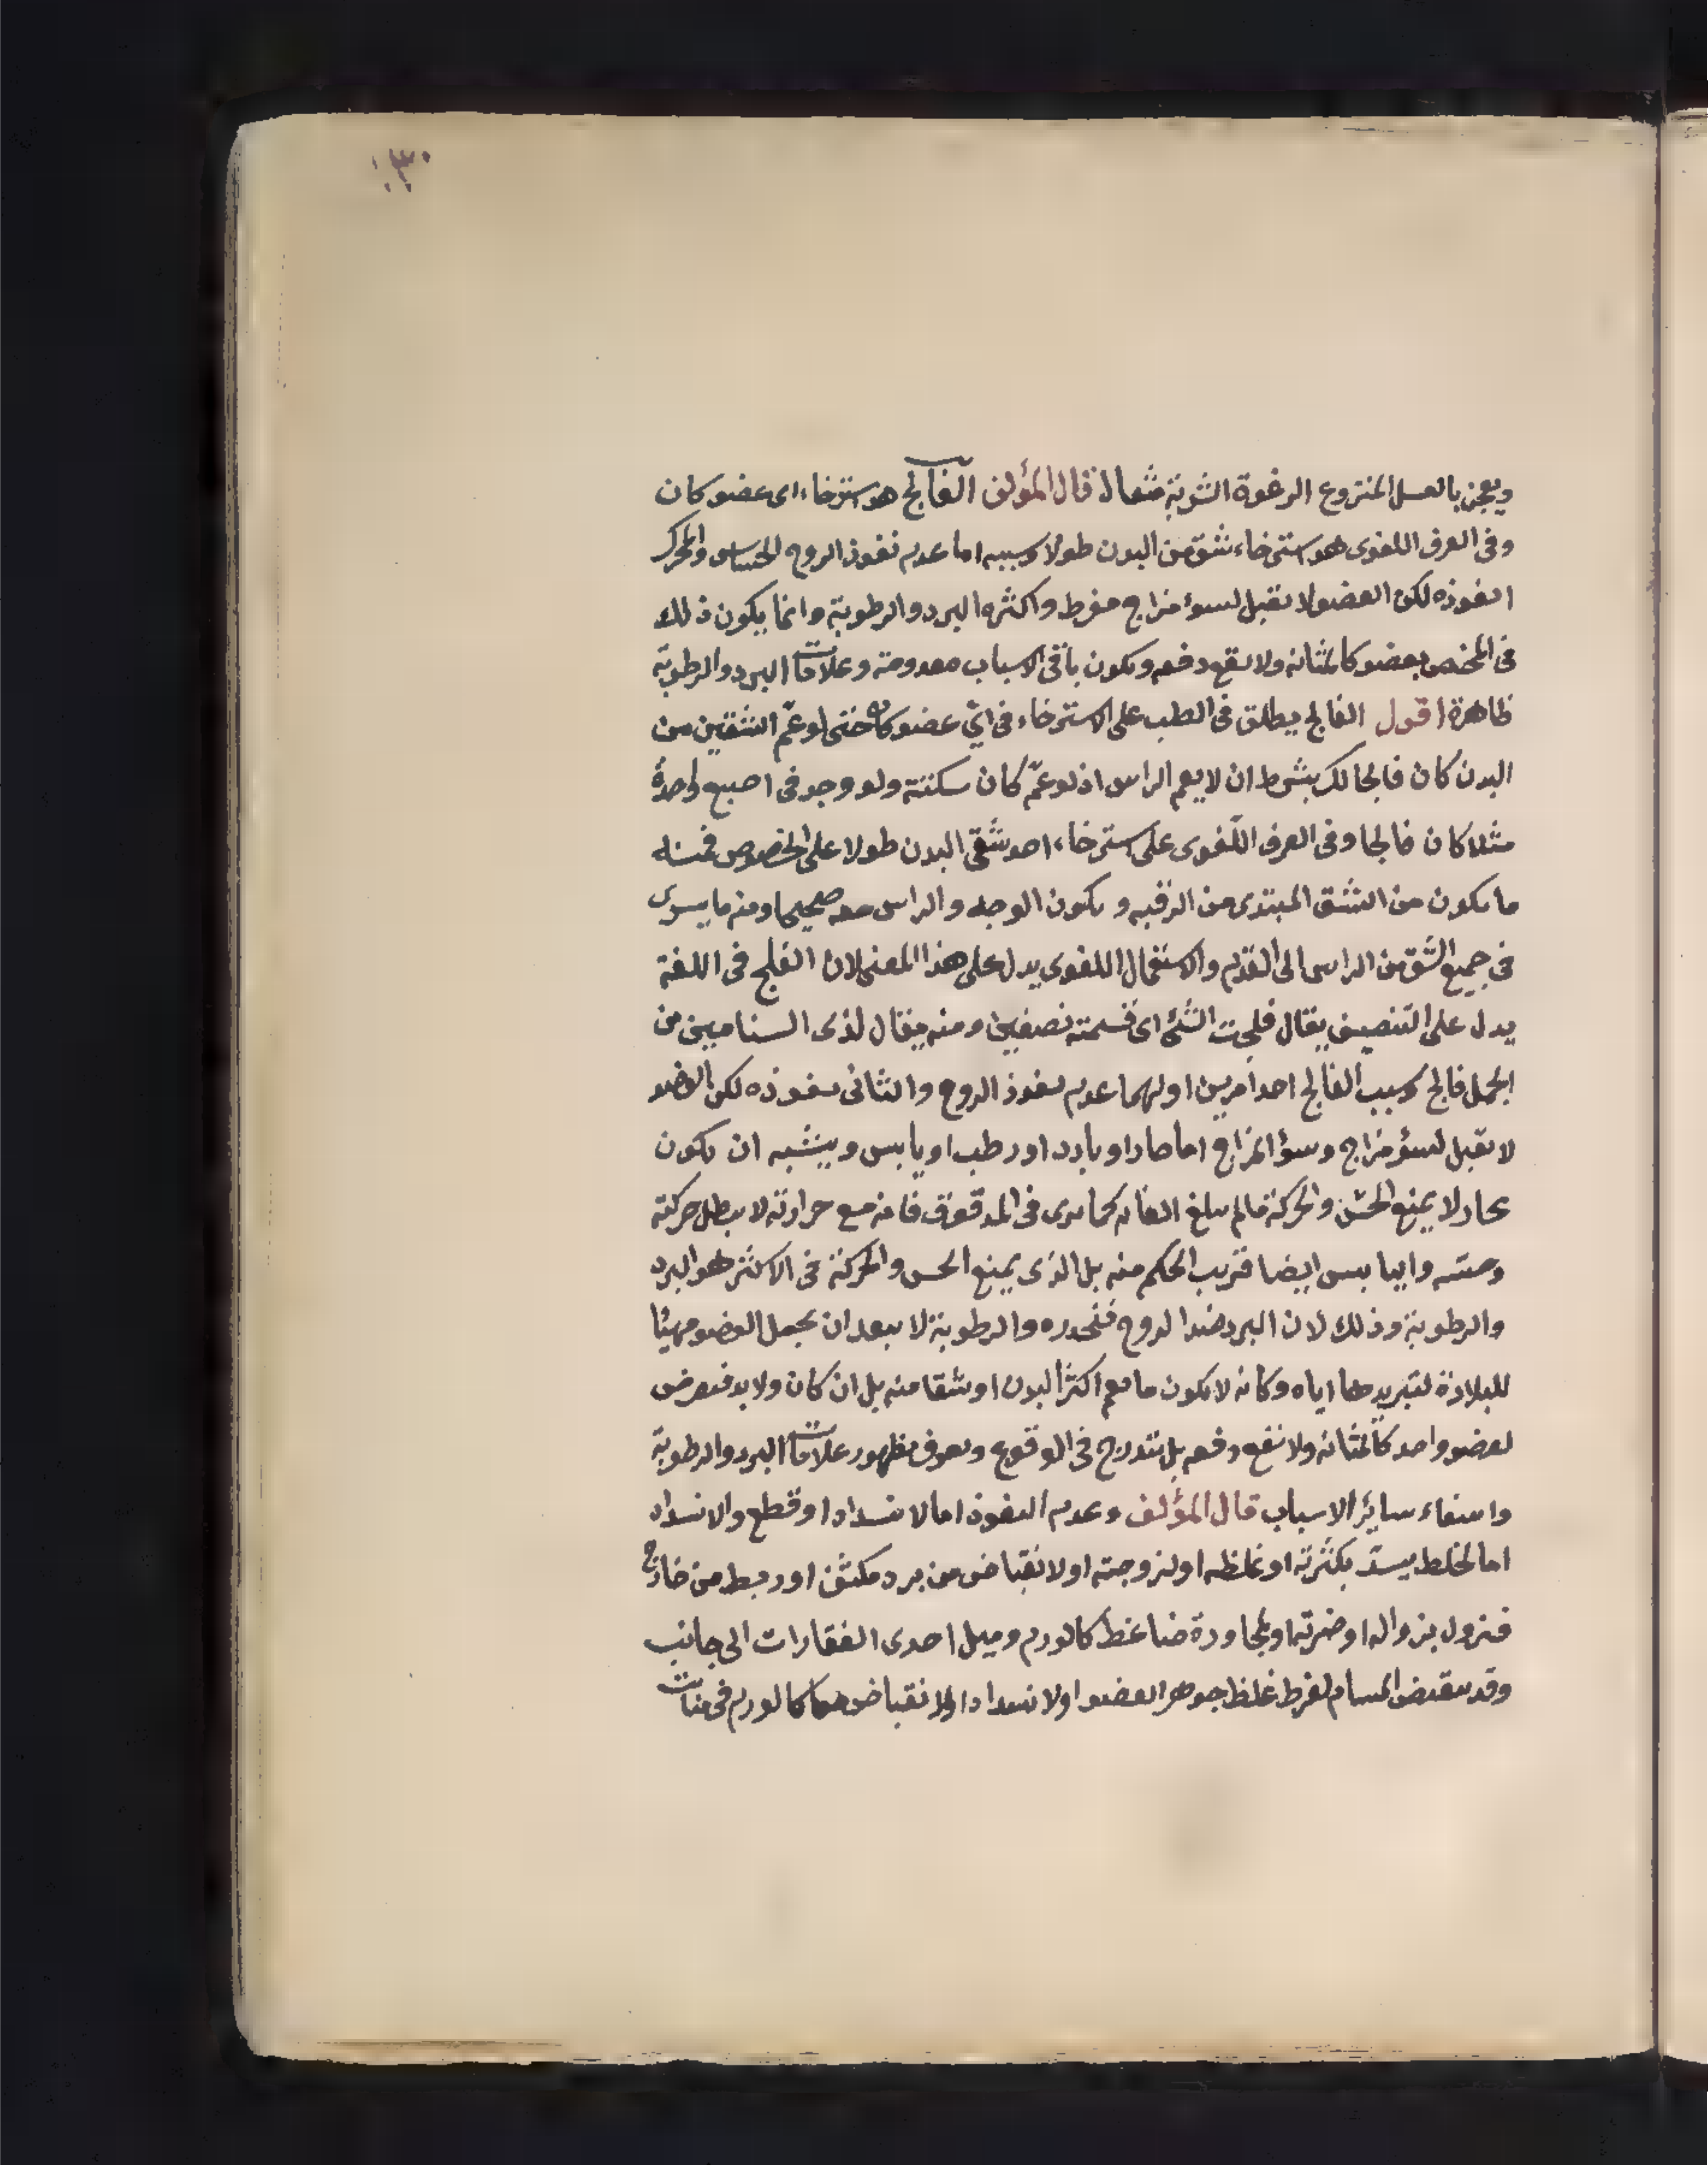 ويعجن بالعسل المنزوع الرغوة الشربة مثقال قال المؤلف الفالج هو استرخاء اى عضو كان
وفى العرف اللغوى هو استرخاء شق من البدن طولا وسببه اما عدم نفوذ الروح الحساس والمحرك
او نفوذه لكن العضو لا يقبل لسوء مزاج مفرط واكثره البرد والرطوبة وانما يكون ذلك
فى المختص بعضو كالمثانه ولا يقع دفعه ويكون باقى الاسباب معدومة وعلامات البرد والرطوبة
ظاهرة اقول الفالج يطلق فى الطب على الاسترخاء فى اىّ عضو كان حتى لو عمّ الشقين من
البدن كان فالجا لكن بشرط ان لا يعم الراس اذ لو عمّ كان سكتة ولو وجد فى اصبع واحدة
مثلا كان فالجا وفى العرف اللّغوى على استرخاء احد شقى البدن طولا على الخصوص فمنه
ما يكون من الشق المبتدى من الرقبه ويكون الوجه والراس معه صحيحا ومنه ما يسرى
فى جميع الشّق من الراس الى القدم والاستعمال اللغوى يدل على هذا المعنى لان الفلج فى اللغة
يدل على التنصيف يقال فلجت الشئ اى قسمته نصفين ومنه يقال لذى السنامين من
الجمل فالج وسبب الفالج احد امرين اولهما عدم نفوذ الروح والثانى نفوذه لكن العضو
لا يقبل لسؤ مزاج وسؤ المزاج اما حار او بارد او رطب او يابس ويشبه ان يكون
الحار لا يمنع الحسّ والحركة مالم يبلغ الغايه كما يرى فى المدقوق فانه مع حرارته لا يبطل حركته
وحسّه واليابس ايضا قريب الحكم منه بل الذى يمنع الحس والحركة فى الاكثر هو البرد
والرطوبة وذلك لان البرد ضد الروح فتخدره والرطوبة لا يبعد ان يجعل العضو مهيئا
للبلادة لتبريدها اياه وكانه لا يكون ما يعم اكثر البدن او شقا منه بل ان كان ولا بد فيعرض
لعضو واحد كالمثانه ولا يقع دفعه بل يتدرج فى الوقوع ويعرف بظهور علامات البرد والرطوبة
وانتفاء سائر الاسباب قال المؤلف وعدم النفوذ اما لانسداد او قطع والانسداد
اما لخلط يسدّ بكثرته او غلظه او لزوجته او لانقباض من برد مكثف او ربط من خارج
فيزول بزواله او ضربة او لمجاورة ضاغط كالورم وميل احدى الفقارات الى جانب
وقد ينقبض المسام لفرط غلظ جوهر العضو او لانسداد او لانقباض معا كالورم فى منابت